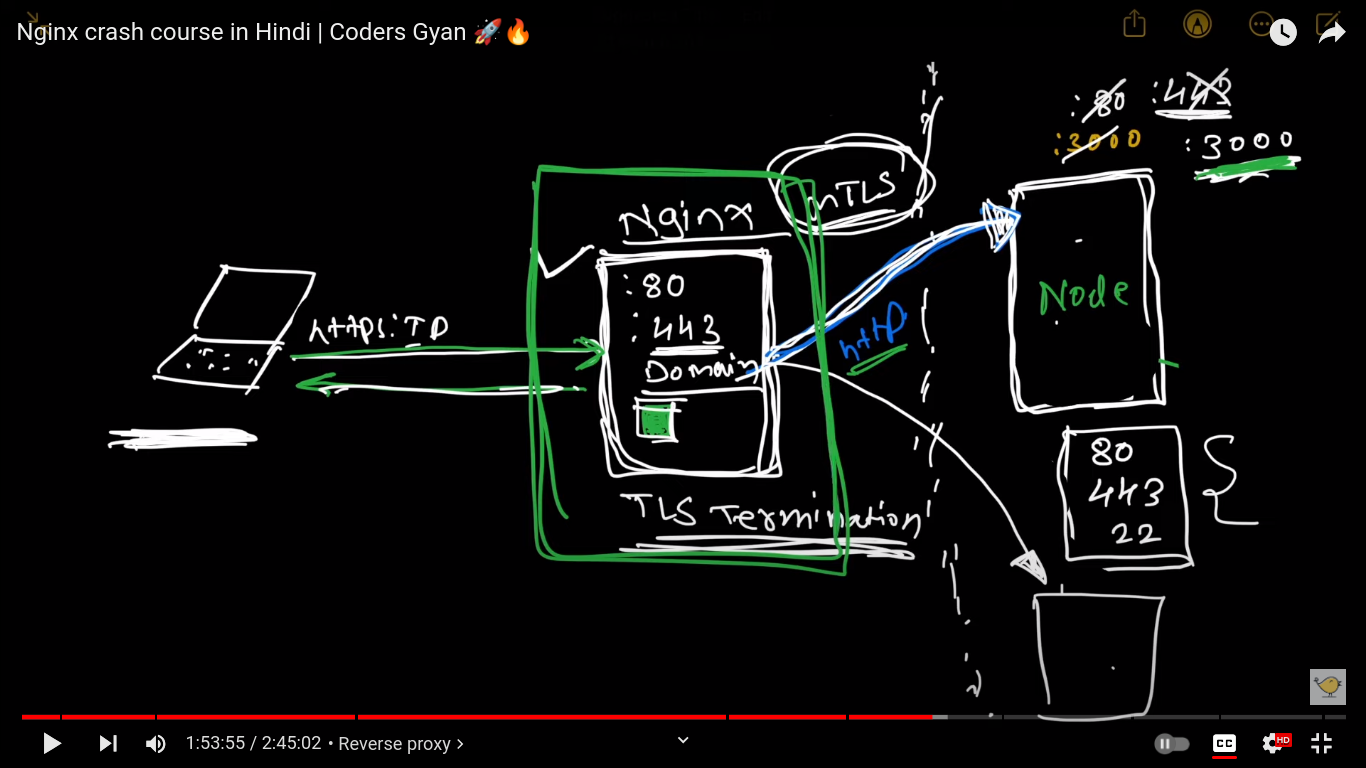 Nginx crash course in Hindi | Coders Gyan 🚀🔥
:80 :443
:3000 :3000
mTLS
Nginx
:80
:443
Domain
http
Node
80
443
22
TLS Termination
1:53:55 / 2:45:02 • Reverse proxy >
CC
HD